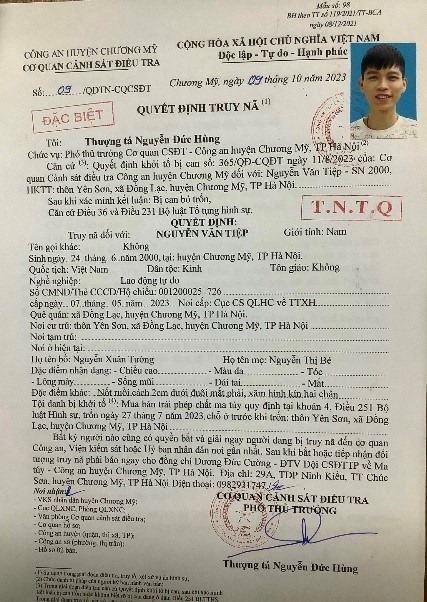 Mẫu số: 98
BH theo TT số 119/2021/TT-BCA
ngày 08/12/2021
CÔNG AN HUYỆN CHƯƠNG MỸ
CƠ QUAN CẢNH SÁT ĐIỀU TRA
CỘNG HÒA XÃ HỘI CHỦ NGHĨA VIỆT NAM
Độc lập - Tự do - Hạnh phúc
Số: 09 /QĐTN-CQCSĐT
Chương Mỹ, ngày 09 tháng 10 năm 2023
ĐẶC BIỆT
QUYẾT ĐỊNH TRUY NÃ (1)
Tôi: Thượng tá Nguyễn Đức Hùng
Chức vụ: Phó thủ trưởng Cơ quan CSĐT - Công an huyện Chương Mỹ, TP Hà Nội (2)
Căn cứ (3). Quyết định khởi tố bị can số: 365/QĐ-CQĐT ngày 11/8/2023 của: Cơ
quan Cảnh sát điều tra Công an huyện Chương Mỹ đối với: Nguyễn Văn Tiệp - SN 2000,
HKTT: thôn Yên Sơn, xã Đồng Lạc, huyện Chương Mỹ, TP Hà Nội.
Sau khi xác minh kết luận: Bị can bỏ trốn.
Căn cứ Điều 36 và Điều 231 Bộ luật Tố tụng hình sự.
T.N.T.Q
QUYẾT ĐỊNH:
Truy nã đối với: NGUYỄN VĂN TIỆP Giới tính: Nam
Tên gọi khác: Không
Sinh ngày 24 tháng 6 năm 2000, tại: huyện Chương Mỹ, TP Hà Nội.
Quốc tịch: Việt Nam Dân tộc: Kinh Tôn giáo: Không
Nghề nghiệp: Lao động tự do
Số CMND/Thẻ CCCD/Hộ chiếu: 001200025 726
cấp ngày 07 tháng 05 năm 2023 Nơi cấp: Cục CS QLHC về TTXH.
Quê quán: xã Đồng Lạc, huyện Chương Mỹ, TP Hà Nội
Nơi cư trú: thôn Yên Sơn, xã Đồng Lạc, huyện Chương Mỹ, TP Hà Nội
Nơi tạm trú:
Nơi ở hiện tại:
Họ tên bố: Nguyễn Xuân Tường Họ tên mẹ: Nguyễn Thị Bé
Đặc điểm nhận dạng: - Chiều cao - Màu da - Tóc
- Lông mày - Sống mũi - Dái tai - Mắt
Đặc điểm khác: Nốt ruồi cách 2cm dưới đuôi mắt phải, xăm hình kín hai chân
Tội danh bị khởi tố (4): Mua bán trái phép chất ma túy quy định tại khoản 4, Điều 251 Bộ
luật Hình sự, trốn ngày 27 tháng 7 năm 2023, chỗ ở trước khi trốn: thôn Yên Sơn, xã
Đồng Lạc, huyện Chương Mỹ, TP Hà Nội
Bất kỳ người nào cũng có quyền bắt và giải ngay người đang bị truy nã đến cơ quan
Công an, Viện kiểm sát hoặc Uỷ ban nhân dân nơi gần nhất. Sau khi bắt hoặc tiếp nhận đối
tượng truy nã phải báo ngay cho đồng chí Dương Đức Cường - ĐTV Đội CSĐTTP về Ma
túy - Công an huyện Chương Mỹ, TP Hà Nội. Địa chỉ: 29A, TDP Ninh Kiều, TT Chúc
Sơn, huyện Chương Mỹ, TP Hà Nội Điện thoại: 0982931747
Nơi nhận:
- VKS nhân dân huyện Chương Mỹ;
- Cục QLXNC, Phòng QLXNC;
- Văn phòng Cơ quan cảnh sát điều tra;
- Cơ quan hồ sơ;
- Công an huyện (quận, thị xã, TP);
- Công an xã (phường, thị trấn);
- Hồ sơ 02 bản.
CƠ QUAN CẢNH SÁT ĐIỀU TRA
PHÓ THỦ TRƯỞNG
Thượng tá Nguyễn Đức Hùng